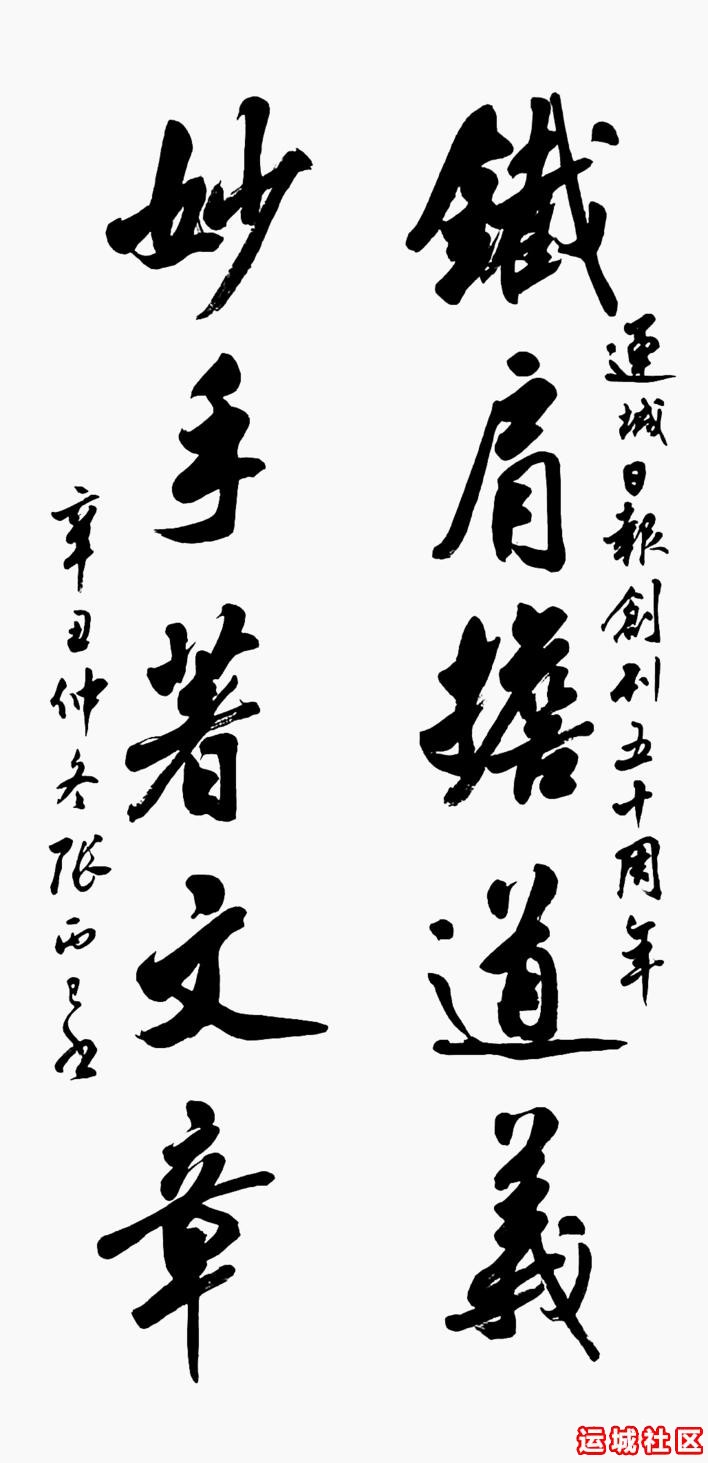 運城日報創刊五十周年
鐵肩擔道義
妙手著文章
辛丑仲冬張西己書
运城社区